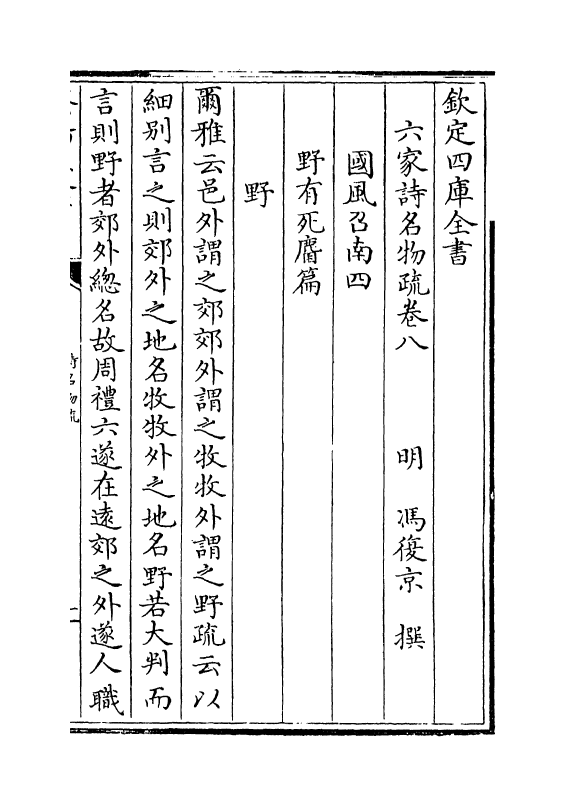 欽定四庫全書
六家詩名物疏卷八　明　馮復京　撰
國風召南四
野有死麕篇
野
爾雅云邑外謂之郊郊外謂之牧牧外謂之野疏云以
細别言之則郊外之地名牧牧外之地名野若大判而
言則野者郊外緫名故周禮六遂在遠郊之外遂人職